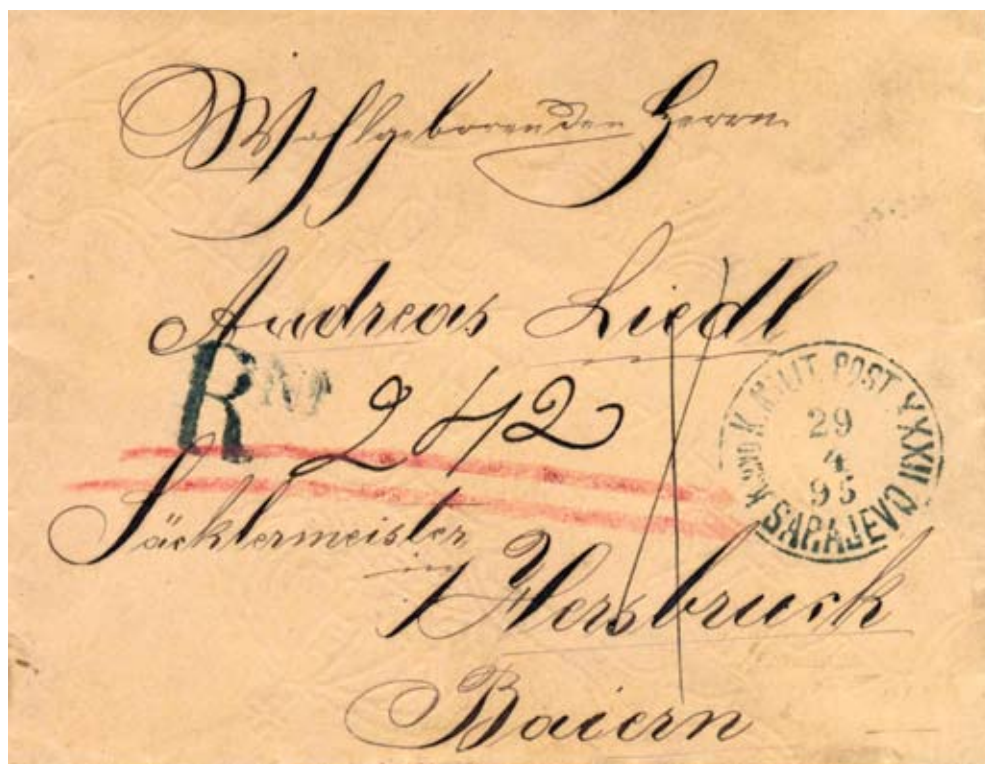 Wohlgeboren den Herrn
Andreas Liedl
R No 242
K. UND K. MILIT. POST XXXVII
29
4
95
SARAJEVO
Säcklermeister
in
Hersbruck
Baiern